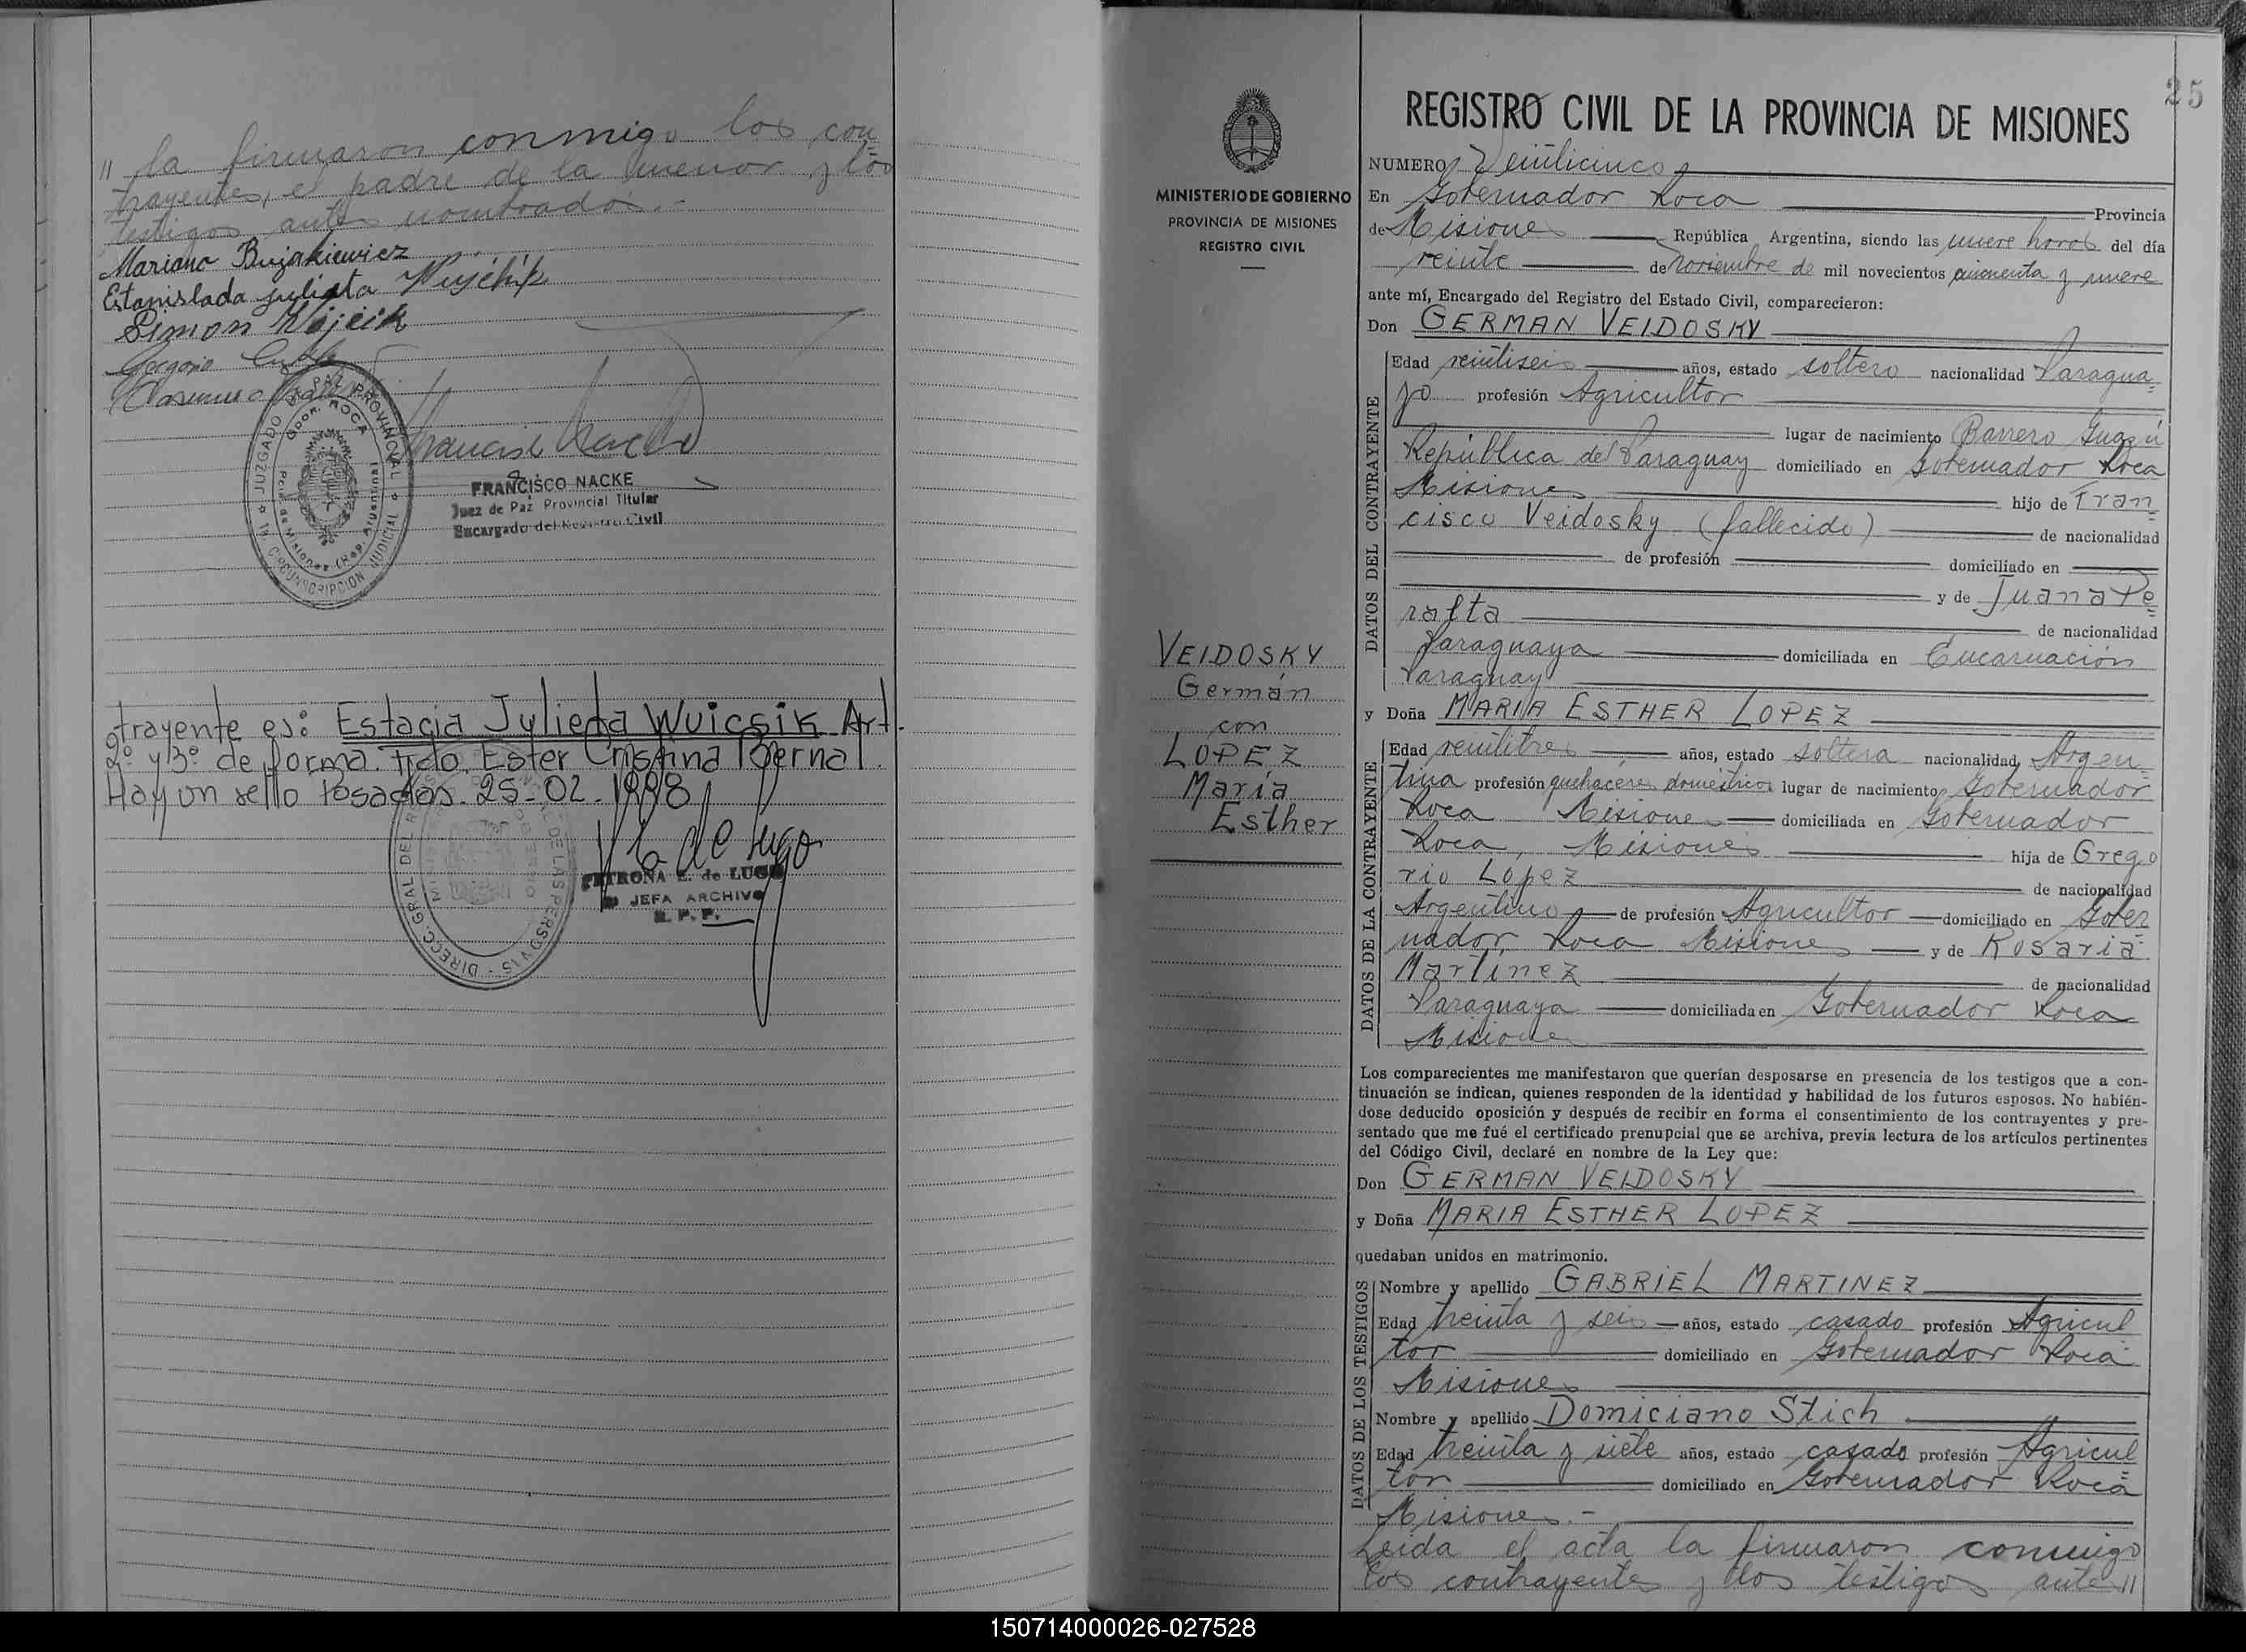 " la firmaron conmigo los con=
trayentes, el padre de la menor y los
testigos antes nombrados.-
Mariano Bujakiewicz
Estanislada Julieta Wujchik
Simon Wojcik
Gorgonio
JUZGADO DE PAZ PROVINCIAL
GDOR. ROCA
Pcia. de Misiones (Rep. Argentina)
1a. CIRCUNSCRIPCION JUDICIAL
FRANCISCO NACKE
Juez de Paz Provincial Titular
Encargado del Registro Civil
trayente es: Estacia Julieta Wuicsik Art.
2º y 3º de forma. Fdo. Ester Cristina Bernal.
Hay un sello Posadas. 25-02.1998
DIRECC. GRAL DEL R
DE LAS PERSONAS
PETRONA E. de LUGO
JEFA ARCHIVO
R. P. P.
25
MINISTERIO DE GOBIERNO
PROVINCIA DE MISIONES
REGISTRO CIVIL
VEIDOSKY
Germán
con
LOPEZ
María
Esther
REGISTRO CIVIL DE LA PROVINCIA DE MISIONES
NUMERO Veinticinco
En Gobernador Roca Provincia
de Misiones República Argentina, siendo las nueve horas del día
veinte de Noviembre de mil novecientos cincuenta y nueve
ante mí, Encargado del Registro del Estado Civil, comparecieron:
Don GERMAN VEIDOSKY
DATOS DEL CONTRAYENTE
Edad veintiseis años, estado soltero nacionalidad Paragua=
yo profesión Agricultor
lugar de nacimiento Barrero Guazú
República del Paraguay domiciliado en Gobernador Roca
Misiones hijo de Fran=
cisco Veidosky (fallecido) de nacionalidad
de profesión domiciliado en
y de Juana Pe=
ralta de nacionalidad
Paraguaya domiciliada en Encarnación
Paraguay
y Doña MARIA ESTHER LOPEZ
DATOS DE LA CONTRAYENTE
Edad veintitres años, estado soltera nacionalidad Argen=
tina profesión quehaceres domésticos lugar de nacimiento Gobernador
Roca Misiones domiciliada en Gobernador
Roca, Misiones hija de Grego
rio Lopez de nacionalidad
Argentino de profesión Agricultor domiciliado en Gober
nador Roca Misiones y de Rosaria
Martínez de nacionalidad
Paraguaya domiciliada en Gobernador Roca
Misiones
Los comparecientes me manifestaron que querían desposarse en presencia de los testigos que a con-
tinuación se indican, quienes responden de la identidad y habilidad de los futuros esposos. No habién-
dose deducido oposición y después de recibir en forma el consentimiento de los contrayentes y pre-
sentado que me fué el certificado prenupcial que se archiva, previa lectura de los artículos pertinentes
del Código Civil, declaré en nombre de la Ley que:
Don GERMAN VEIDOSKY
y Doña MARIA ESTHER LOPEZ
quedaban unidos en matrimonio.
DATOS DE LOS TESTIGOS
Nombre y apellido GABRIEL MARTINEZ
Edad treinta y seis años, estado casado profesión Agricul
tor domiciliado en Gobernador Roca
Misiones
Nombre y apellido Domiciano Stich
Edad treinta y siete años, estado casado profesión Agricul
tor domiciliado en Gobernador Roca
Misiones.-
Leída el acta la firmaron conmigo
los contrayentes y los testigos antes "
150714000026-027528